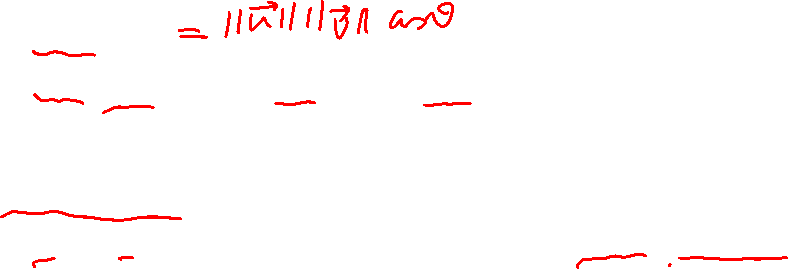 = ||u⃗|| ||v⃗|| cosθ